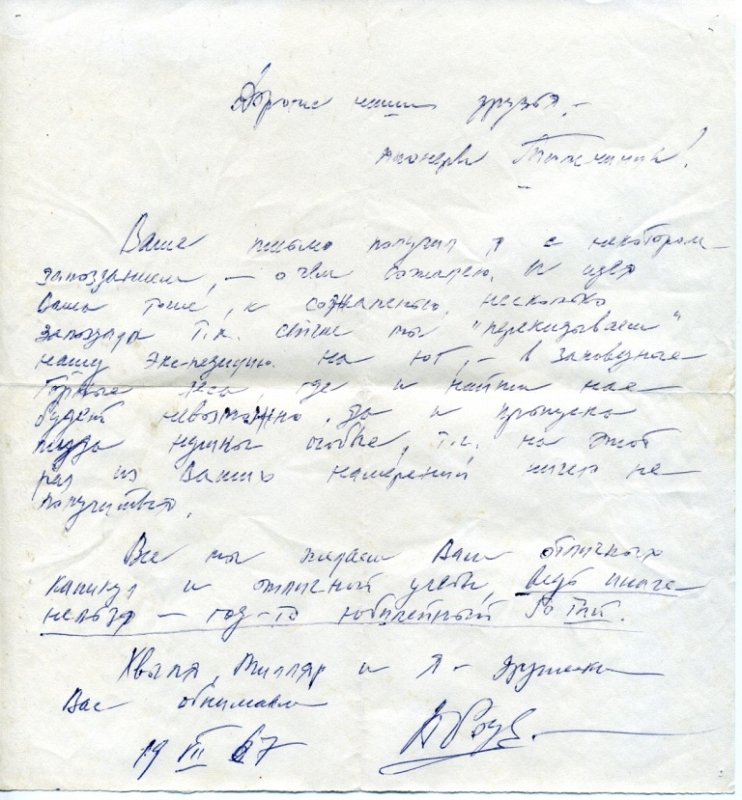 Дорогие наши друзья, –
пионеры
Ваше письмо получил я с некотором
запозданием, – о чём сожалею. И идея
Ваша тоже, к сожалению, несколько
запоздала т.к. сейчас мы "перекидываем"
нашу экспедицию на юг, – в заповедные
горные леса, где и найти нас
будет невозможно, да и пропуска
туда нужны особые, т.ч. на этот
раз из Ваших намерений ничего не
получится.
Все мы желаем Вам отличных
каникул и отличной учебы, ведь иначе
нельзя – год-то юбилейный 50
Хвыля, Милляр и я – дружески
Вас обнимаем
19 III 67